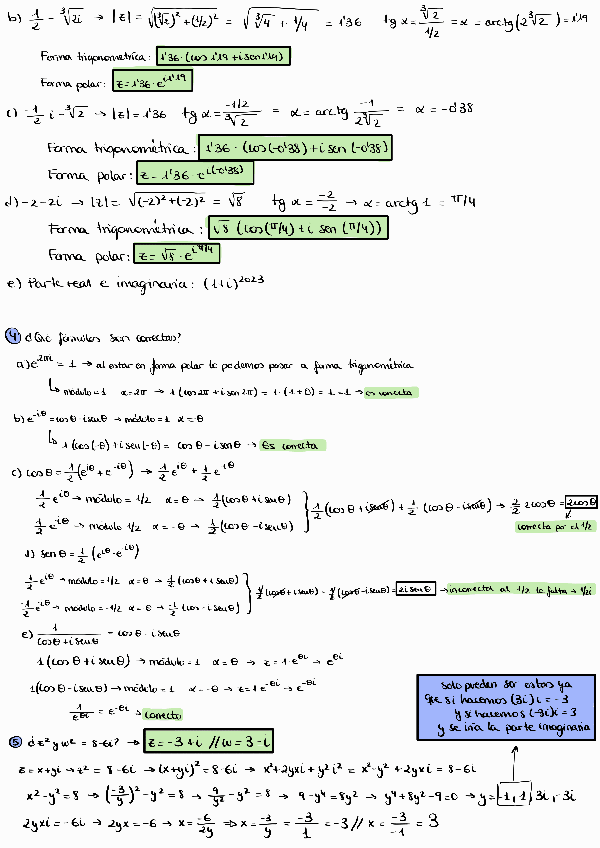 b) 1/2 - ∛2i → |z| = √((∛2)² + (1/2)²) = √(∛4 + 1/4) = 1'36 tg α = ∛2 / 1/2 = α = arctg(2∛2) = 1'19
Forma trigonométrica: 1'36 · (cos 1'19 + i sen 1'19)
Forma polar: z = 1'36 · e^(i1'19)
c) -1/2 i - ∛2 → |z| = 1'36 tg α = -1/2 / ∛2 = α = arctg -1 / 2∛2 = α = -0'38
Forma trigonométrica: 1'36 · (cos(-0'38) + i sen(-0'38)
Forma polar: z = 1'36 · e^(i(-0'38))
d) -2-2i → |z| = √((-2)² + (-2)²) = √8 tg α = -2/-2 → α = arctg 1 = π/4
Forma trigonométrica: √8 (cos(π/4) + i sen (π/4))
Forma polar: z = √8 · e^(iπ/4)
e) Parte real e imaginaria: (1+i)^2023
4 ¿Qué fórmulas son correctas?
a) e^(2πi) = 1 → al estar en forma polar lo podemos pasar a forma trigonométrica
↳ módulo = 1 α = 2π → 1 (cos 2π + i sen 2π) = 1 · (1 + 0) = 1 = 1 → es correcta
b) e^(-iθ) = cos θ - i sen θ → módulo = 1 α = θ
↳ 1 (cos(-θ) + i sen(-θ) = cos θ - i sen θ → Es correcta
c) cos θ = 1/2 (e^(iθ) + e^(-iθ)) → 1/2 e^(iθ) + 1/2 e^(iθ)
1/2 e^(iθ) → módulo = 1/2 α = θ → 1/2 (cos θ + i sen θ)
1/2 e^(iθ) → módulo 1/2 α = -θ → 1/2 (cos θ - i sen θ) } 1/2 (cos θ + i sen θ) + 1/2 · (cos θ - i sen θ) → 2/2 2cos θ = 2cos θ
correcta por el 1/2
d) sen θ = 1/2 (e^(iθ) - e^(iθ))
1/2 e^(iθ) → módulo = 1/2 α = θ → 1/2 (cos θ + i sen θ)
-1/2 e^(iθ) → módulo = -1/2 α = θ → -1/2 (cos - i sen θ) } 1/2 (cos θ + i sen θ) - 1/2 (cos θ - i sen θ) = 2i sen θ → incorrecta al 1/2 le falta → 1/2i
e) 1 / cos θ + i sen θ = cos θ - i sen θ
1 (cos θ + i sen θ) → módulo = 1 α = θ → z = 1 · e^(θi) → e^(θi)
1 (cos θ - i sen θ) → módulo = 1 α = -θ → z = 1 · e^(-θi) → e^(-θi)
1 / e^(θi) = e^(-θi) → correcto
solo pueden ser estos ya
que si hacemos (3i)i = -3
y si hacemos (-3i)i = 3
y se iría la parte imaginaria
5 ¿z² y w² = 8-6i? → z = -3 + i // w = 3 - i
z = x + yi → z² = 8 - 6i → (x + yi)² = 8 - 6i → x² + 2yxi + y² i² = x² - y² + 2yxi = 8 - 6i
x² - y² = 8 → (-3/y)² - y² = 8 → 9/y² - y² = 8 → 9 - y⁴ = 8y² → y⁴ + 8y² - 9 = 0 → y = -1, 1, 3i, -3i
2yxi = -6i → 2yx = -6 → x = -6/2y ⇒ x = -3/y = -3/1 = -3 // x = -3/-1 = 3